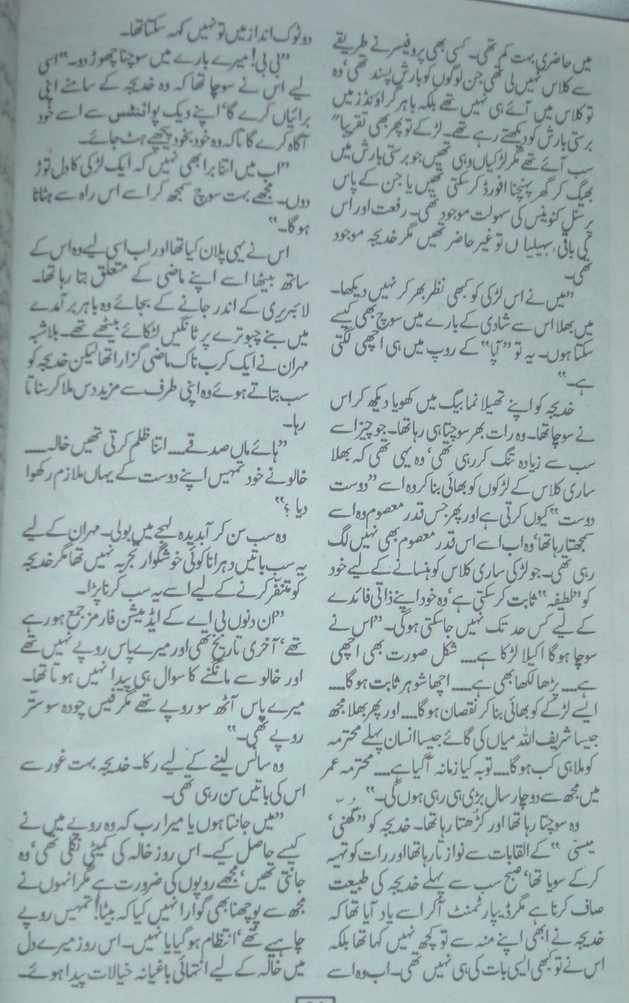 میں حاضری بہت کم تھی۔ کسی بھی پروفیسر نے طریقے
سے کلاس نہیں لی تھی جن لوگوں کو بارش پسند تھی‘ وہ
تو کلاس میں آئے ہی نہیں تھے بلکہ باہر گراؤنڈز میں
برستی بارش کو دیکھتے رہے تھے۔ لڑکے تو پھر بھی تقریباً
سب آئے تھے مگر لڑکیاں وہی تھیں جو برستی بارش میں
بھیگ کر گھر پہنچنا افورڈ کر سکتی تھیں یا جن کے پاس
پرسنل کنوینس کی سہولت موجود تھی۔ رفعت اور اس
کی باقی سہیلیاں تو غیر حاضر تھیں مگر خدیجہ موجود
تھی۔
”میں نے اس لڑکی کو کبھی نظر بھر کر نہیں دیکھا۔
میں بھلا اس سے شادی کے بارے میں سوچ بھی کیسے
سکتا ہوں۔ یہ تو ”آپا“ کے روپ میں ہی اچھی لگتی
ہے۔“
خدیجہ کو اپنے تھیلا نما بیگ میں کھویا دیکھ کر اس
نے سوچا تھا۔ وہ رات بھر سوچتا ہی رہا تھا۔ جو چیز اسے
سب سے زیادہ تنگ کر رہی تھی‘ وہ یہی تھی کہ بھلا
ساری کلاس کے لڑکوں کو بھائی بنا کر وہ اسے ”دوست
دوست“ کیوں کرتی ہے اور پھر جس قدر معصوم وہ اسے
سمجھتا رہا تھا‘ وہ اب اسے اس قدر معصوم بھی نہیں لگ
رہی تھی۔ جو لڑکی ساری کلاس کو ہنسانے کے لیے خود
کو ”لطیفہ“ ثابت کر سکتی ہے‘ وہ خود اپنے ذاتی فائدے
کے لیے کس حد تک نہیں جا سکتی ہو گی۔ ”اس نے
سوچا ہو گا اکیلا لڑکا ہے.... شکل صورت بھی اچھی
ہے.... پڑھا لکھا بھی ہے.... اچھا شوہر ثابت ہو گا....
ایسے لڑکے کو بھائی بنا کر نقصان ہو گا.... اور پھر بھلا مجھ
جیسا شریف اللہ میاں کی گائے جیسا انسان پہلے محترمہ
کو ملا ہی کب ہو گا.... توبہ کیا زمانہ آ گیا ہے.... محترمہ عمر
میں مجھ سے دو چار سال بڑی ہی رہی ہوں گی۔“
وہ سوچتا رہا تھا اور کڑھتا رہا تھا۔ خدیجہ کو ”گھنی‘
میسنی“ کے القابات سے نوازتا رہا تھا اور رات کو تہیہ
کر کے سویا تھا‘ صبح سب سے پہلے خدیجہ کی طبیعت
صاف کرنا ہے مگر ڈیپارٹمنٹ آ کر اسے یاد آیا تھا کہ
خدیجہ نے ابھی اپنے منہ سے تو کچھ نہیں کہا تھا بلکہ
اس نے تو کبھی ایسی بات کی ہی نہیں تھی۔ اب وہ اسے
دو ٹوک انداز میں تو نہیں کہہ سکتا تھا۔
”بی بی! میرے بارے میں سوچنا چھوڑ دو۔“ اسی
لیے اس نے سوچا تھا کہ وہ خدیجہ کے سامنے اپنی
برائیاں کرے گا‘ اپنے ویک پوائنٹس سے اسے خود
آگاہ کرے گا تاکہ وہ خود بخود پیچھے ہٹ جائے۔
”اب میں اتنا برا بھی نہیں کہ ایک لڑکی کا دل توڑ
دوں۔ مجھے بہت سوچ سمجھ کر اسے اس راہ سے ہٹانا
ہو گا۔“
اس نے یہی پلان کیا تھا اور اب اسی لیے وہ اس کے
ساتھ بیٹھا اسے اپنے ماضی کے متعلق بتا رہا تھا۔
لائبریری کے اندر جانے کے بجائے وہ باہر برآمدے
میں بنے چبوترے پر ٹانگیں لٹکائے بیٹھے تھے۔ بلاشبہ
مہران نے ایک کرب ناک ماضی گزارا تھا لیکن خدیجہ کو
سب بتاتے ہوئے وہ اپنی طرف سے مزید دس ملا کر سناتا
رہا۔
”ہائے ماں صدقے.... اتنا ظلم کرتی تھیں خالہ....
خالو نے خود تمہیں اپنے دوست کے یہاں ملازم رکھوا
دیا؟“
وہ سب سن کر آبدیدہ لہجے میں بولی۔ مہران کے لیے
یہ سب باتیں دہرانا کوئی خوشگوار تجربہ نہیں تھا مگر خدیجہ
کو متنفر کرنے کے لیے اسے یہ سب کرنا پڑا۔
”ان دنوں بی اے کے ایڈمیشن فارمز جمع ہو رہے
تھے‘ آخری تاریخ تھی اور میرے پاس روپے نہیں تھے
اور خالو سے مانگنے کا سوال ہی پیدا نہیں ہوتا تھا۔
میرے پاس آٹھ سو روپے تھے مگر فیس چودہ سو ستر
روپے تھی۔“
وہ سانس لینے کے لیے رکا۔ خدیجہ بہت غور سے
اس کی باتیں سن رہی تھی۔
”میں جانتا ہوں یا میرا رب کہ وہ روپے میں نے
کیسے حاصل کیے۔ اس روز خالہ کی کمیٹی نکلی تھی‘ وہ
جانتی تھیں‘ مجھے روپوں کی ضرورت ہے مگر انہوں نے
مجھ سے پوچھنا بھی گوارا نہیں کیا کہ بیٹا! تمہیں روپے
چاہیے تھے‘ انتظام ہو گیا یا نہیں۔ اس روز میرے دل
میں خالہ کے لیے انتہائی باغیانہ خیالات پیدا ہوئے۔